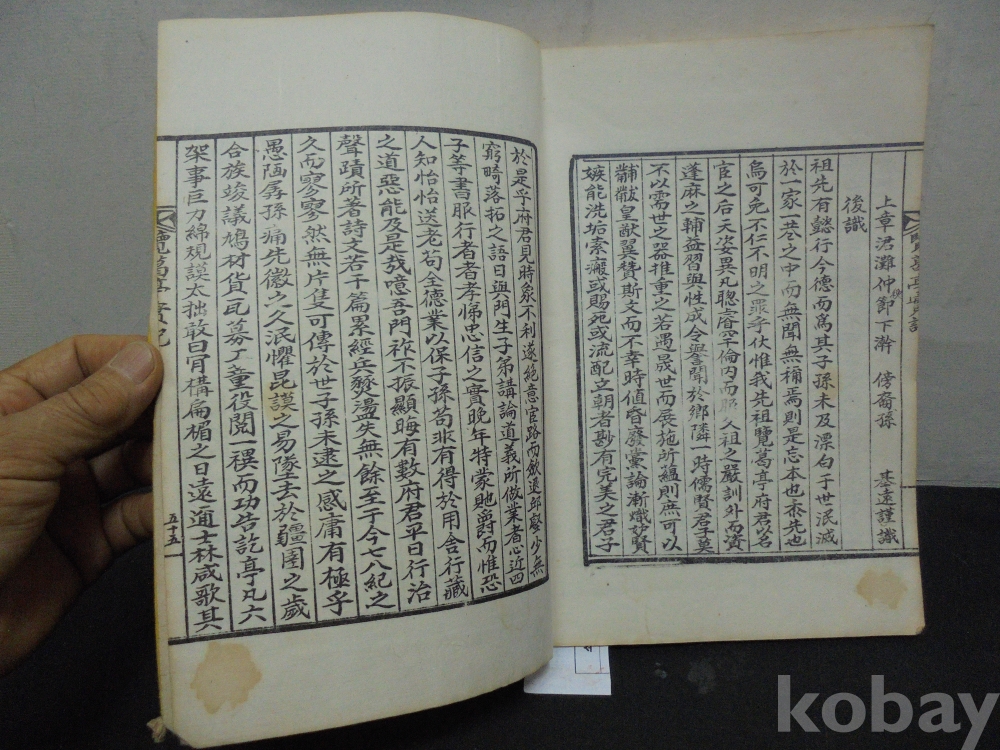 上章涒灘仲節下澣 傍裔孫 基遠謹識
後識
祖先有懿行令德而爲其子孫未及漂白于世泯滅
於一家一巷之中而無聞無稱焉則是忘本也忝先也
烏可免不仁不明之罪乎伏惟我先祖覽葛亭府君以名
宦之后天姿異凡聰睿罕倫內而服久祖之嚴訓外而資
蓬麻之輔益習與性成令譽聞於鄉隣一時儒賢君子莫
不以需世之器推重之若遇晟世而展施所蘊則庶可以
黼黻皇猷翼贊斯文而不幸時値昏廢黨論漸熾妒賢
嫉能洗垢索瘢或賜死或流配立朝者尠有完美之君子
於是乎府君見時象不利遂絶意官路而斂退邱壑少無
窮畸落拓之語日與門生子弟講論道義所做業者心近四
子等書服行者孝悌忠信之實晩年特蒙貤爵而惟恐
人知怡怡送老苟全德業以保子孫苟非有得於用舍行藏
之道惡能及是哉噫吾門祚不振顯晦有數府君平日行治
聲蹟所著詩文若干篇累經兵燹蕩失無餘至于今八紀之
久而寥寥然無片隻可傳於世子孫未逮之感庸有極乎
愚陋孱孫痛先徽之久泯懼昆謨之易墜去於疆圉之歲
合族竣議鳩材貨瓦募工董役閱一禩而功告訖亭凡六
架事巨力綿規謨太拙敢曰肎構扁楣之日遠邇士林咸歌其
覽葛亭實記
五十五
kobay